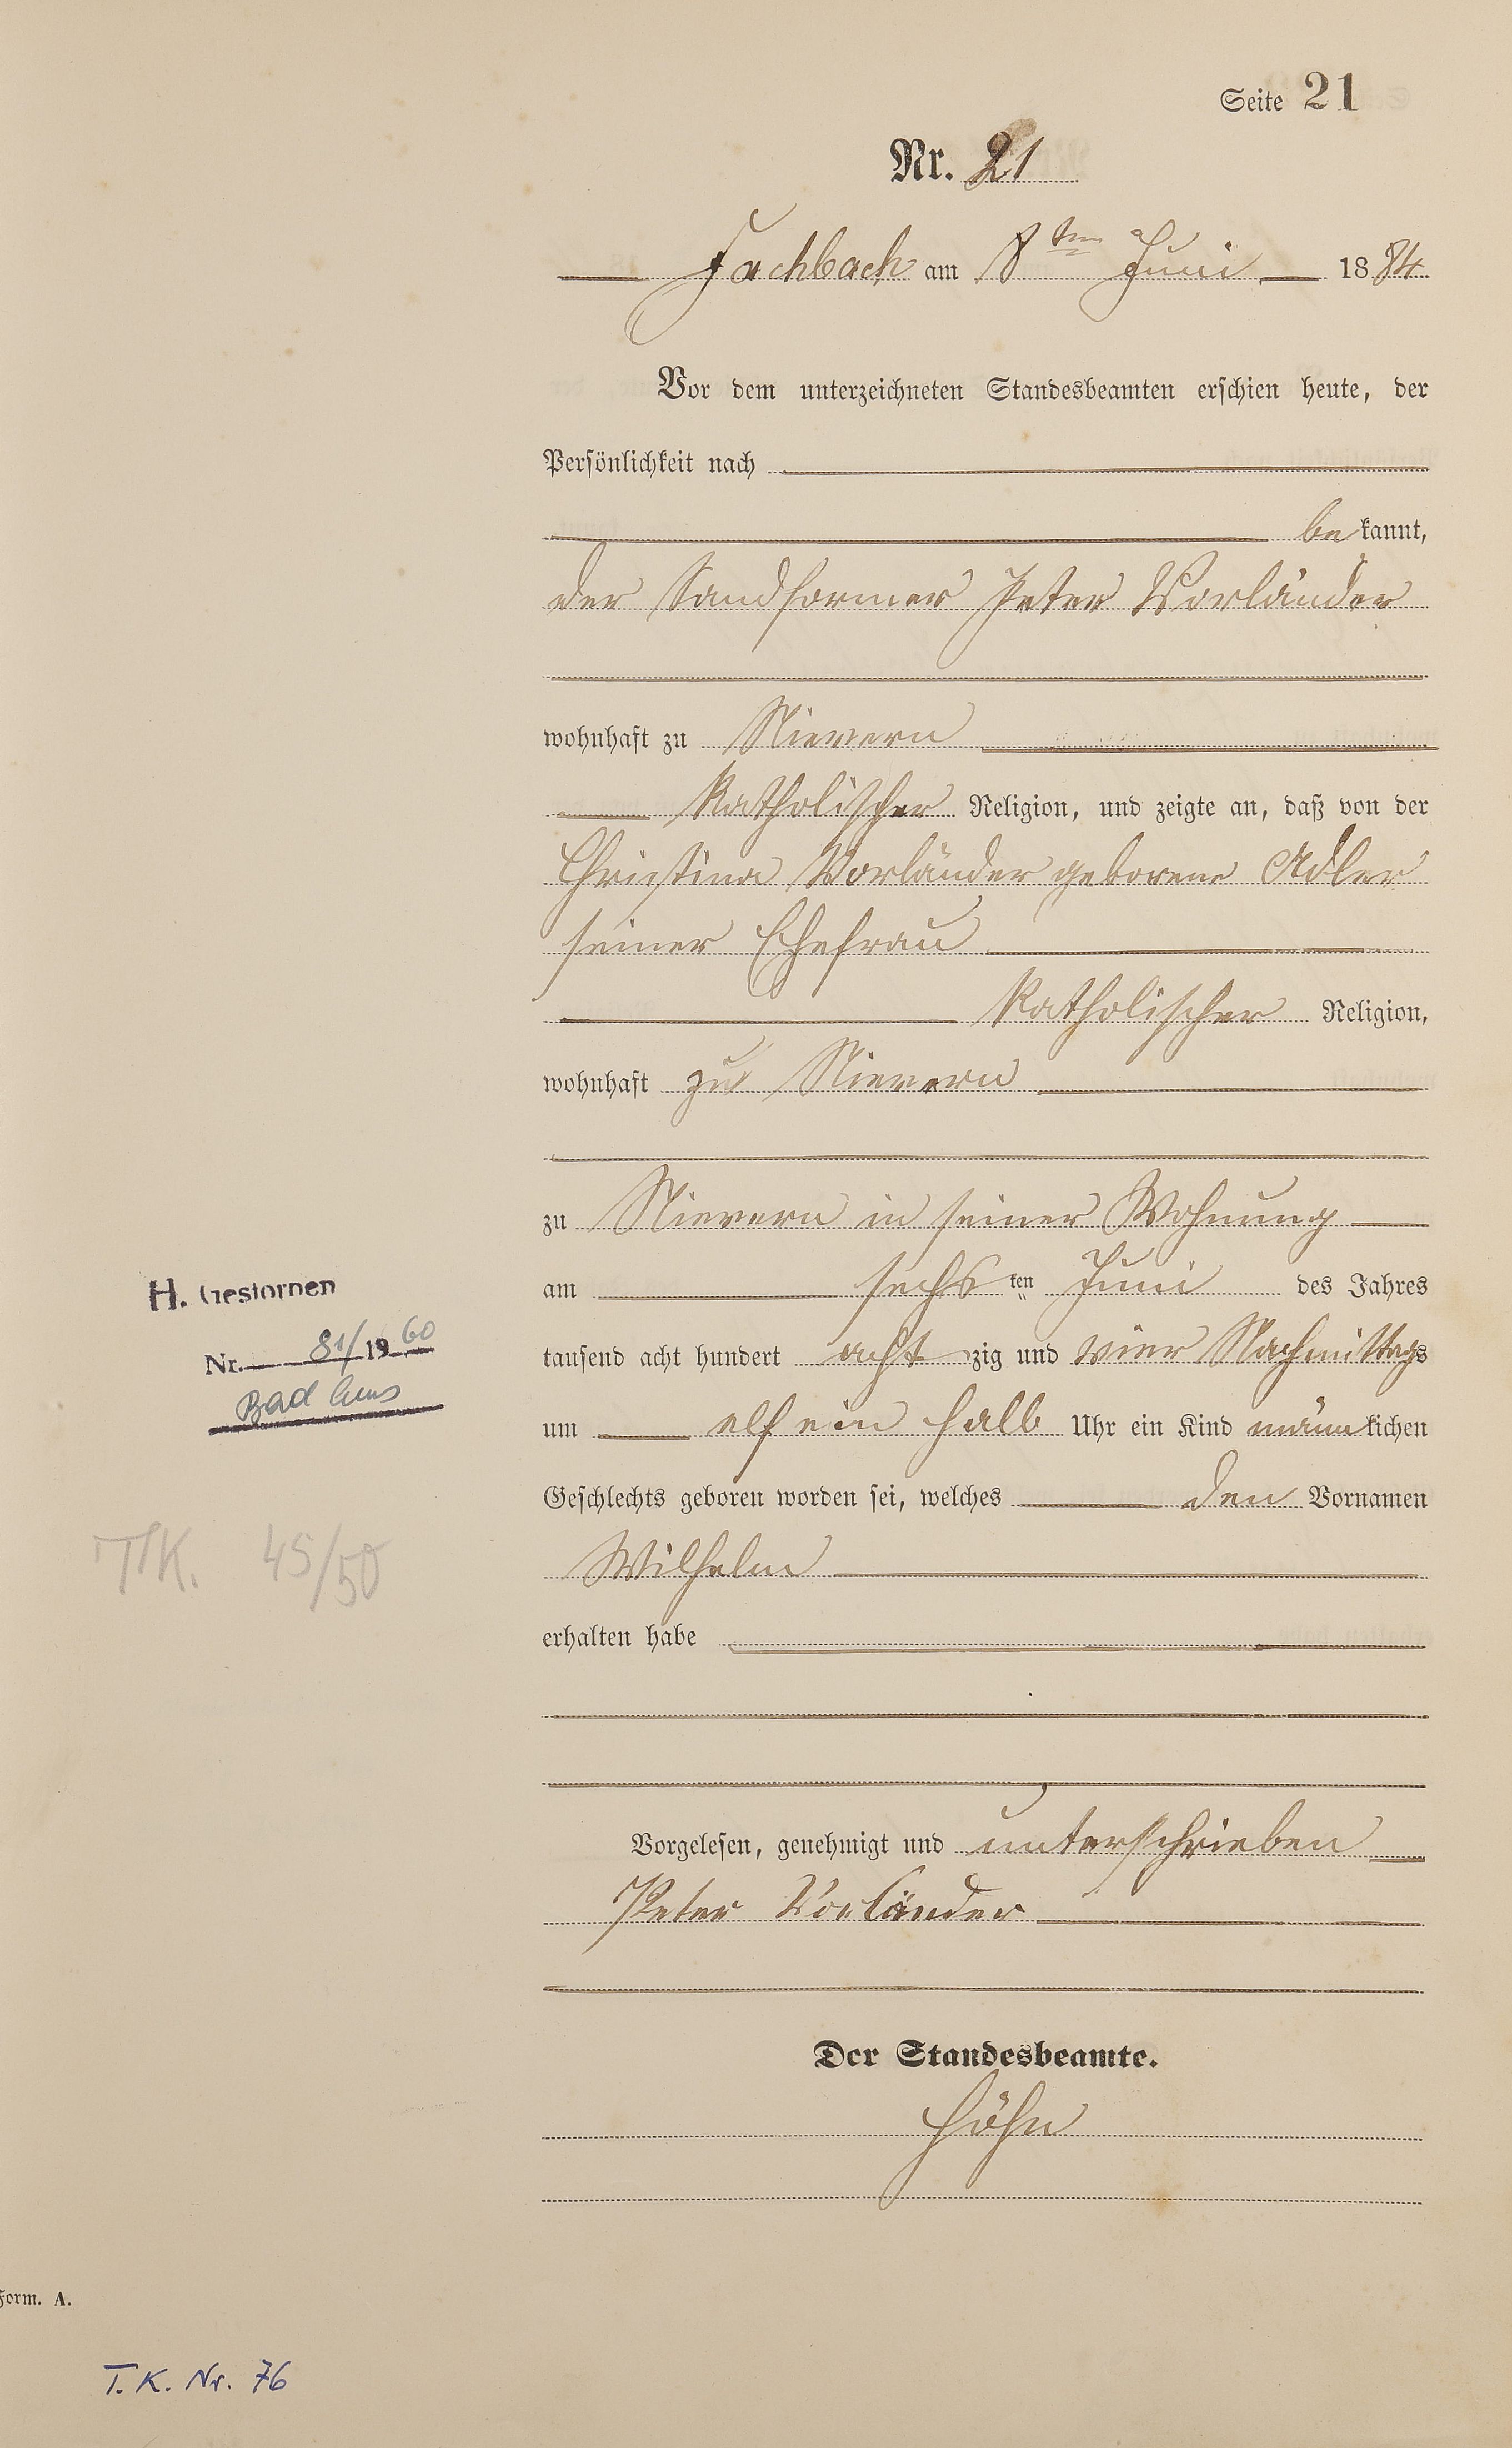 Seite 21
Nr. 21
Fachbach am 8ten Juni 1884
Vor dem unterzeichneten Standesbeamten erschien heute, der
Persönlichkeit nach
bekannt,
der Sandformer Peter Vorländer
wohnhaft zu Nievern
katholischer Religion, und zeigte an, daß von der
Christina Vorländer geborene Adler
seiner Ehefrau
katholischer Religion,
wohnhaft zu Nievern
zu Nievern in seiner Wohnung
am sechsten Juni des Jahres
tausend acht hundert achtzig und vier Nachmittags
um elf ein halb Uhr ein Kind männlichen
Geschlechts geboren worden sei, welches den Vornamen
Wilhelm
erhalten habe
Vorgelesen, genehmigt und unterschrieben
Peter Vorländer
Der Standesbeamte.
Höhn
H. Gestorben
Nr. 81/1960
Bad Ems
TK. 45/50
Form. A.
T.K. Nr. 76